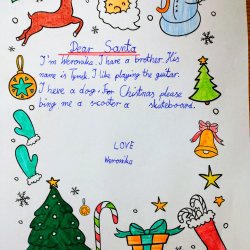 Dear Santa
I'm Weronika. I have a brother. His
name is Tymek. I like playing the guitar.
I have a dog. For Christmas please
bing me a scooter a skateboard.
LOVE
Weronika